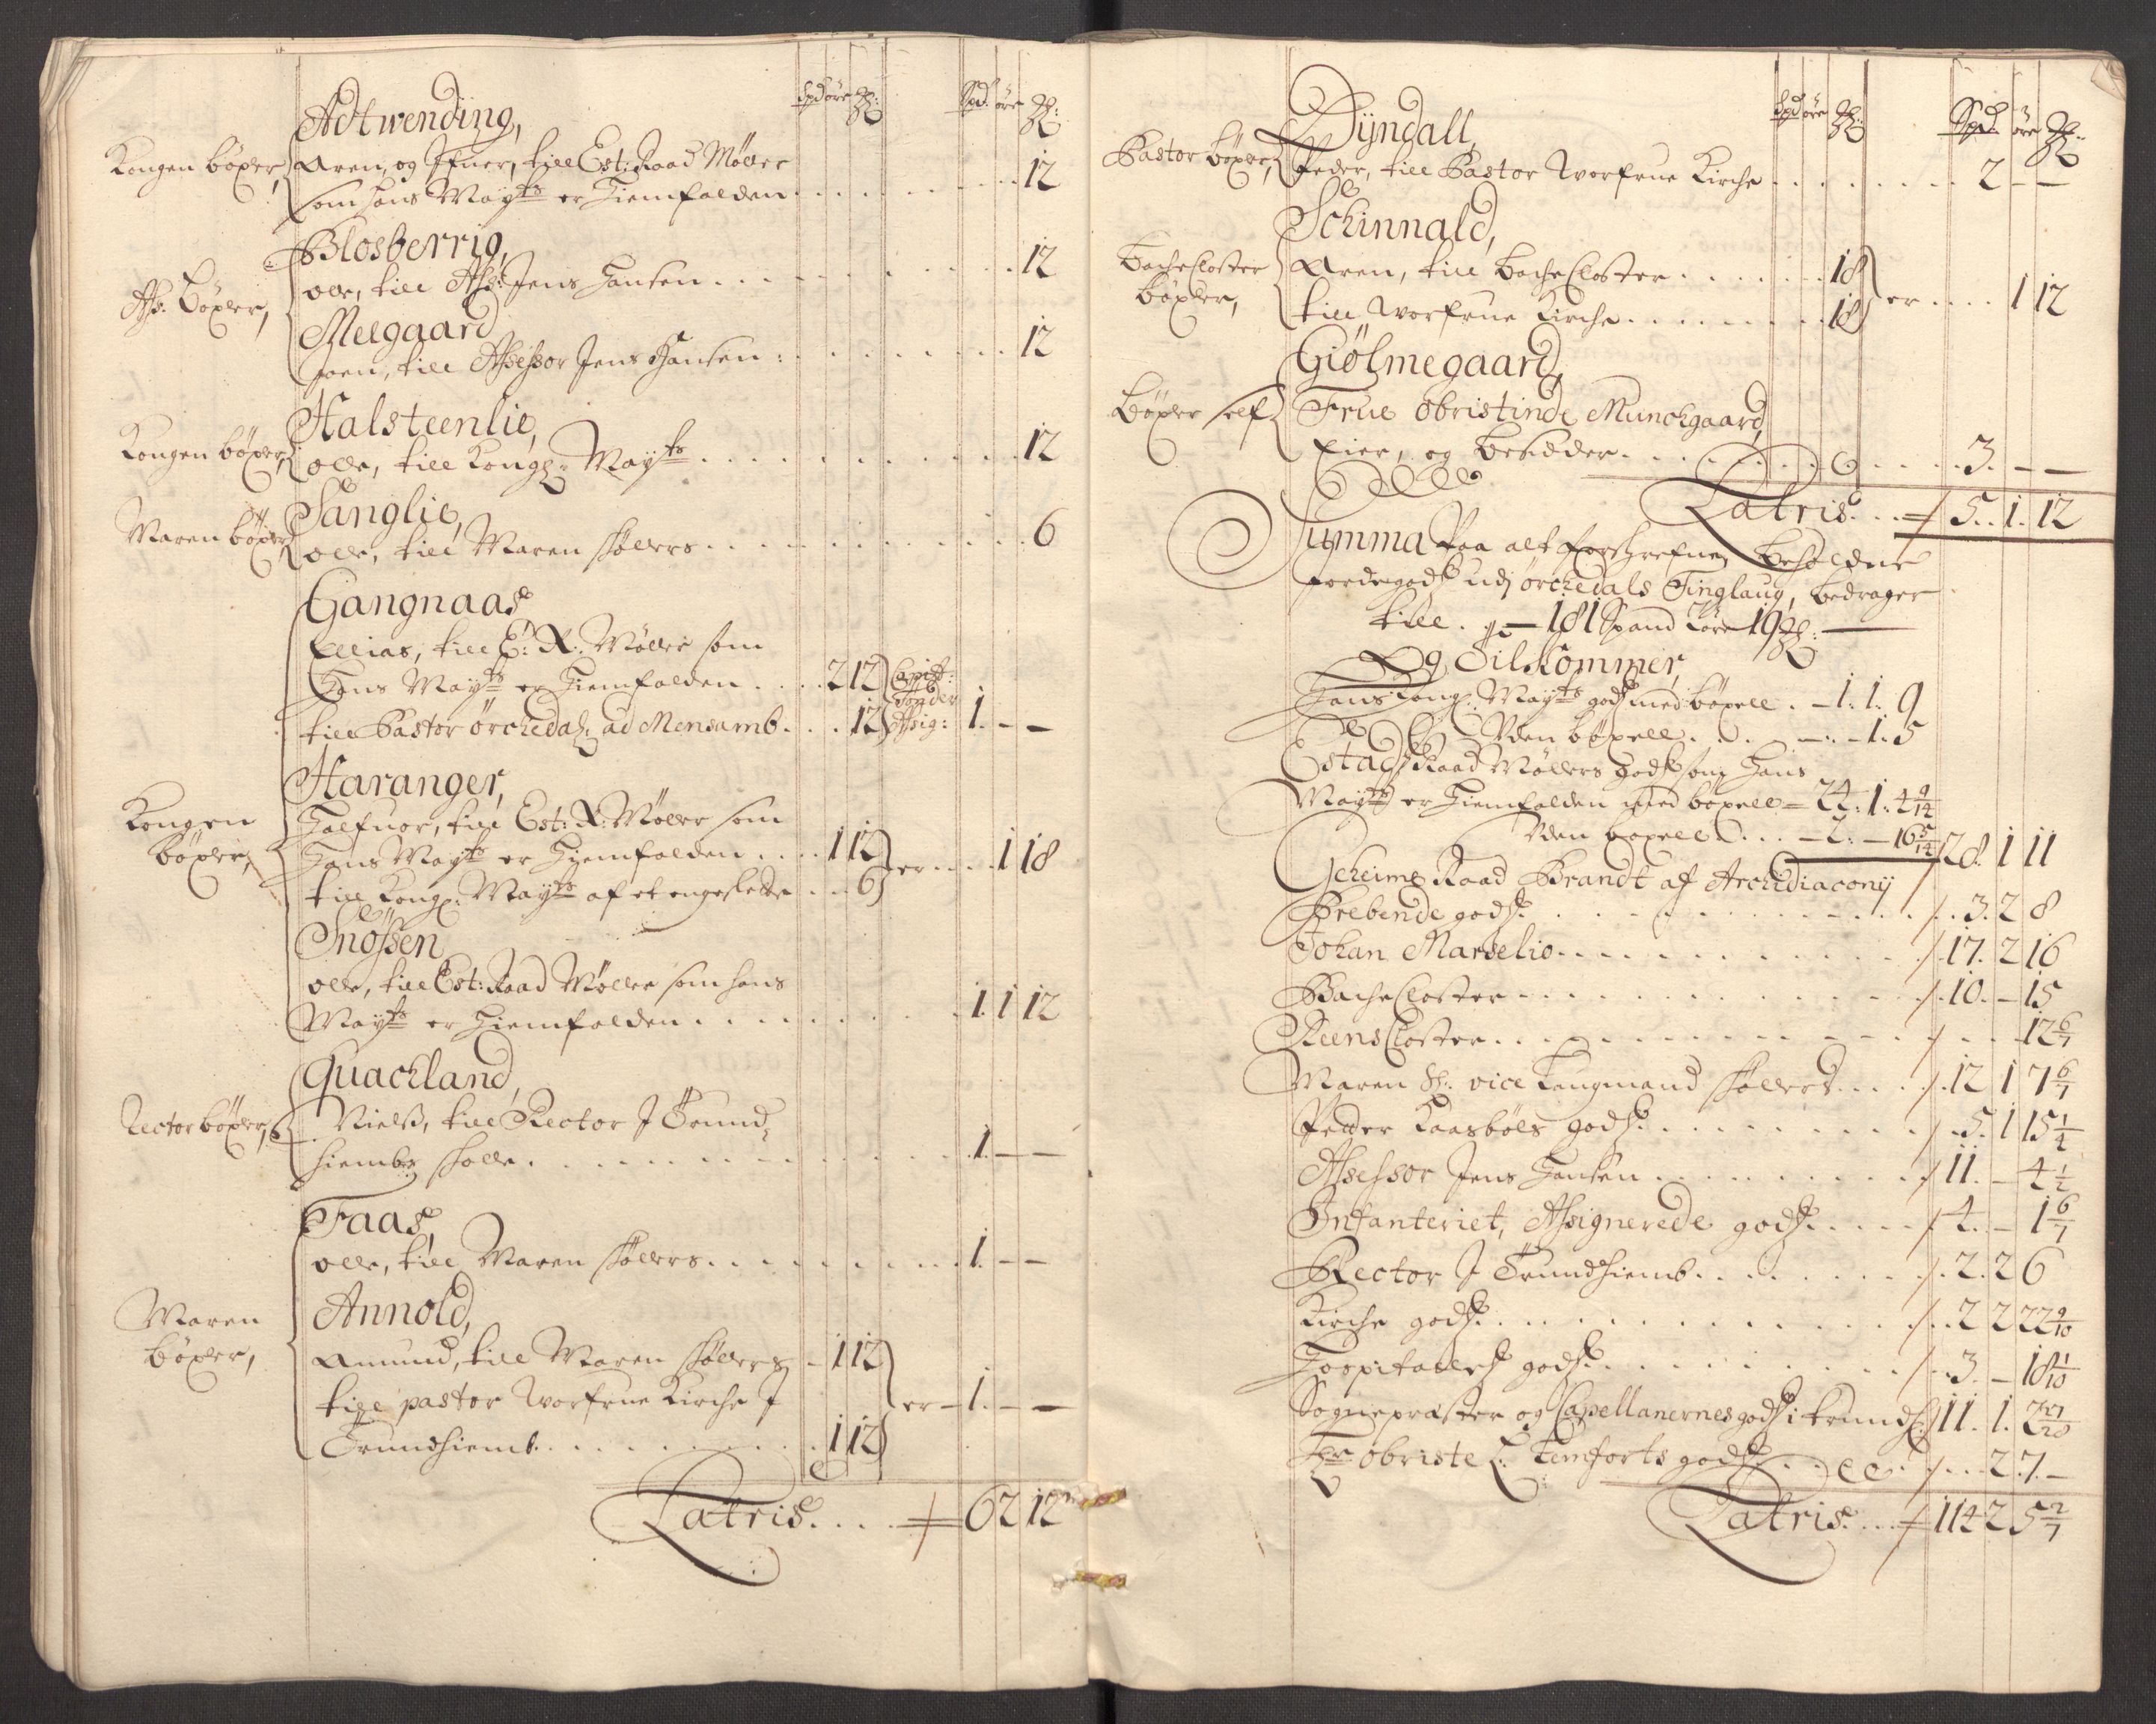 Spd öre
Spd. öre
Adtwending,
Kongen böxler,
Aren, og Ifuer, till Est: Raad Möller
som hans Mayts er hiemfalden . . . 12
Blosberrig,
Ass: Böxler,
olle, till Ass: Jens Hansen . . . 12
Meegaard
Joen, till Assessor Jens Hansen : . . . 12
Halsteenlie,
Kongen böxler,
olle, till Kongl: Mayts . . . 12
Sanglie,
Maren böxler
olle, till Maren Schöllers . . . 6
Gangnaas
Ellias, till E: R. Möller som
Hans Mayts er hiemfalden . . . 2 12
till Pastor örchedal ad Mensamb . . . 12 Assig: 1. – –
Haranger,
Kongen
böxler,
Halfuor, till Est: R: Möller som
Hans Mayts er hiemfalden . . . 1 12
till Kongl: Mayts af et engeslette . . . 6 er . . . 1 18
Snössen
olle, till Est: Raad Möller som hans
Mayts er hiemfalden . . . 1. 1 12
Quachland,
Rector böxler,
Nielss, till Rector I Trund-
hiembs Scholle . . . 1. – –
Faas,
olle, till Maren Schöllers . . . 1. – –
Annold,
Maren
böxler,
Amund, till Maren Schöllers – 1 12
till pastor Worfrue Kirche I
Trundhiemb . . . 1 12 er – 1. – –
Latris . . . 6 2 12
Spd öre
Spd. öre
Dyndall,
Pastor böxler,
Peder, till Pastor Worfrue Kirche . . . 2 – –
Schinnald,
Bache Closter
böxler,
Aren, till Bache Closter . . . 18
till Worfrue Kirche . . . 18 er . . . 1 12
Giölmegaard,
Böxler self
Frue Obristinde Munchgaard,
Eier, og besidder . . . 3. – –
Latris . . . 5. 1. 12
Summa Paa alt forschrefne beholdne
Jordegods udj örchedals Tinglaug, bedrager
till . – 181 Spand 2 öre 19
Og Tilkommer,
Hans Kongl: Mayts gods med böxell . – 1. 1. 9
Uden böxell . . . – 1. 5
Estads Raad Möllers gods som Hans
Mayts er hiemfalden med böxell – 24. 1. 4 9/14
Uden böxell . . . – 2. – 16 5/14 28. 1 11
Geheime Raad Brandt af Archidiaconij
Prebende gods . . . 3. 2 8
Johan Marselio . . . 17. 2 16
Bache Closter . . . 10. – 15
Reens Closter . . . 12 6/7
Maren Sl: vice Laugmand Schöllers . . . 12 1 7 6/7
Peder Kaasböls gods . . . 5. 1 15 1/2
Assessor Jens Hansen . . . 11. – 4 1/2
Infanteriet, Assignerede gods . . . 4. – 1 6/7
Rector I Trundhiemb . . . 2. 2 6
Kirche gods . . . 2 2 22 9/10
Hospitalets gods . . . 3. – 18 1/10
Sognepræster og Capellanernes gods i trundh: 11. 1. 2
Hr obriste L: Temforts gods . . . 2. 7. –
Latris . . . 114 2 5 2/7